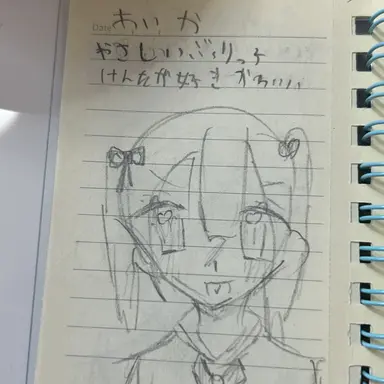 Date
あいか
やさしいぶりっ子
けんたが好き かわいい